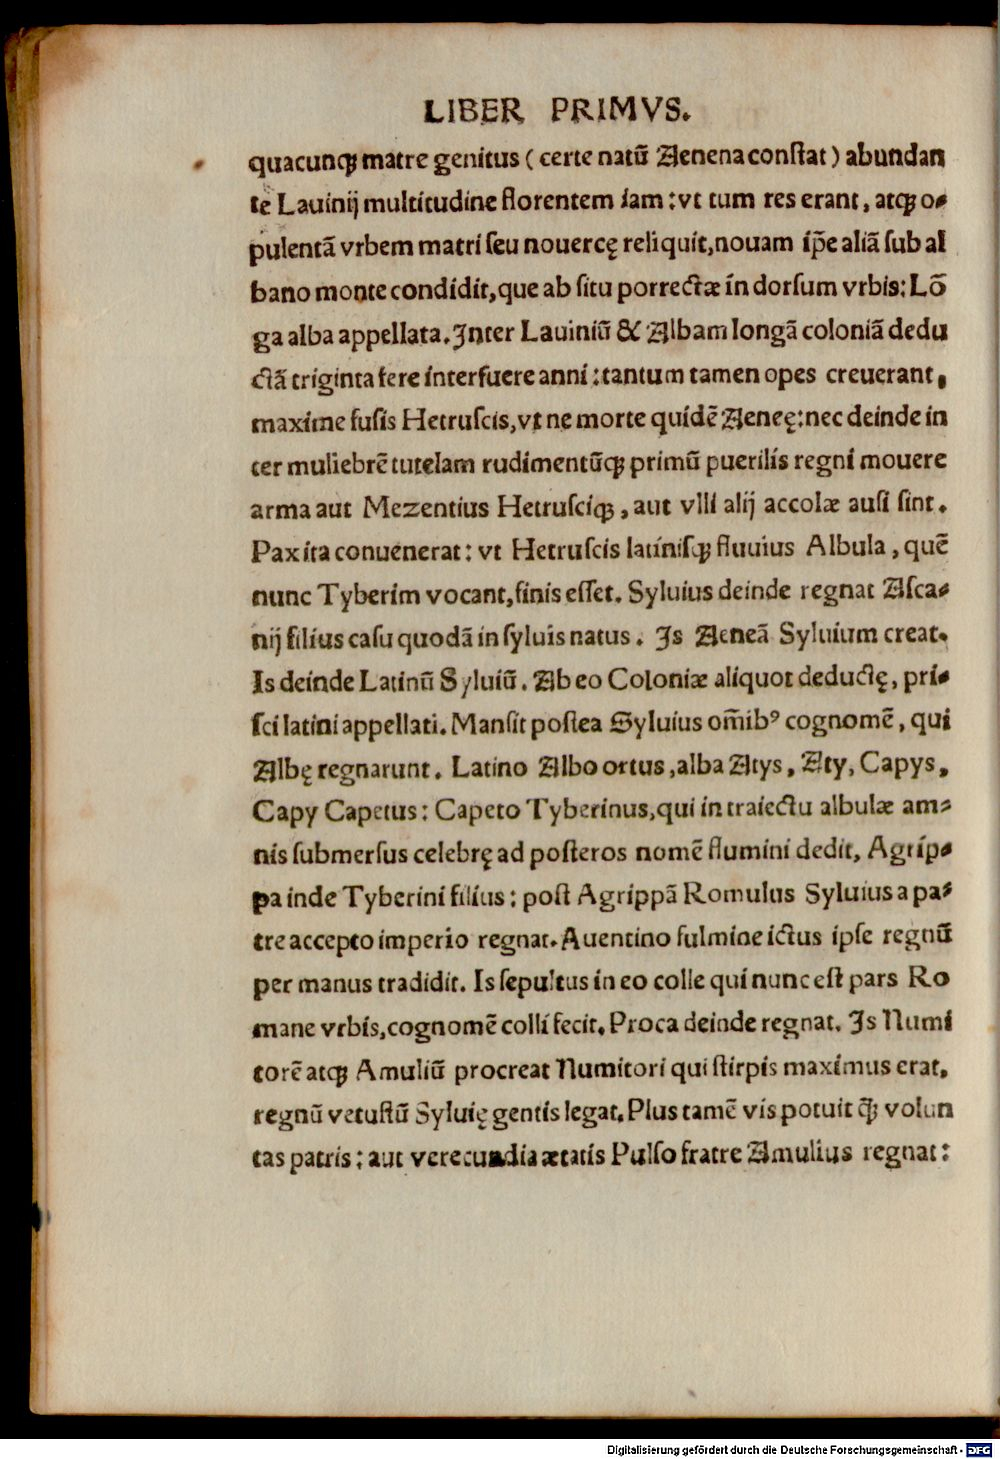 LIBER PRIMVS.
quacunqꝫ matre genitus ( certe natū Aenena conſtat ) abundan
te Lauinij multitudine florentem iam : vt tum res erant, atqꝫ o⸗
pulentā vrbem matri ſeu nouercę reliquit, nouam ip̄e aliā ſub al
bano monte condidit, que ab ſitu porrectæ in dorſum vrbis: Lō
ga alba appellata. Inter Lauiniū & Albam longā coloniā dedu
ctā triginta fere interfuere anni : tantum tamen opes creuerant,
maxime fuſis Hetruſcis, vt ne morte quidē Aeneę: nec deinde in
ter muliebrē tutelam rudimentūqꝫ primū puerilis regni mouere
arma aut Mezentius Hetruſciqꝫ, aut vlli alij accolæ auſi ſint.
Pax ita conuenerat: vt Hetruſcis latiniſqꝫ fluuius Albula, quē
nunc Tyberim vocant, finis eſſet. Syluius deinde regnat Aſca⸗
nij filius caſu quodā in ſyluis natus. Is Aeneā Syluium creat.
Is deinde Latinū Syluiū. Ab eo Coloniæ aliquot deductę, pri⸗
ſci latini appellati. Manſit poſtea Syluius om̄ibꝰ cognomē, qui
Albę regnarunt. Latino Albo ortus, alba Atys, Aty, Capys,
Capy Capetus: Capeto Tyberinus, qui in traiectu albulæ am⸗
nis ſubmerſus celebrę ad poſteros nomē flumini dedit, Agrip⸗
pa inde Tyberini filius: poſt Agrippā Romulus Syluius a pa⸗
tre accepto imperio regnat. Auentino fulmine ictus ipſe regnū
per manus tradidit. Is ſepultus in eo colle qui nunc eſt pars Ro
mane vrbis, cognomē colli fecit. Proca deinde regnat. Is Numi
torē atqꝫ Amuliū procreat Numitori qui ſtirpis maximus erat,
regnū vetuſtū Syluię gentis legat. Plus tamē vis potuit q̄ꝫ volun
tas patris: aut verecundia ætatis Pulſo fratre Amulius regnat:
Digitalisierung gefördert durch die Deutsche Forschungsgemeinschaft - DFG